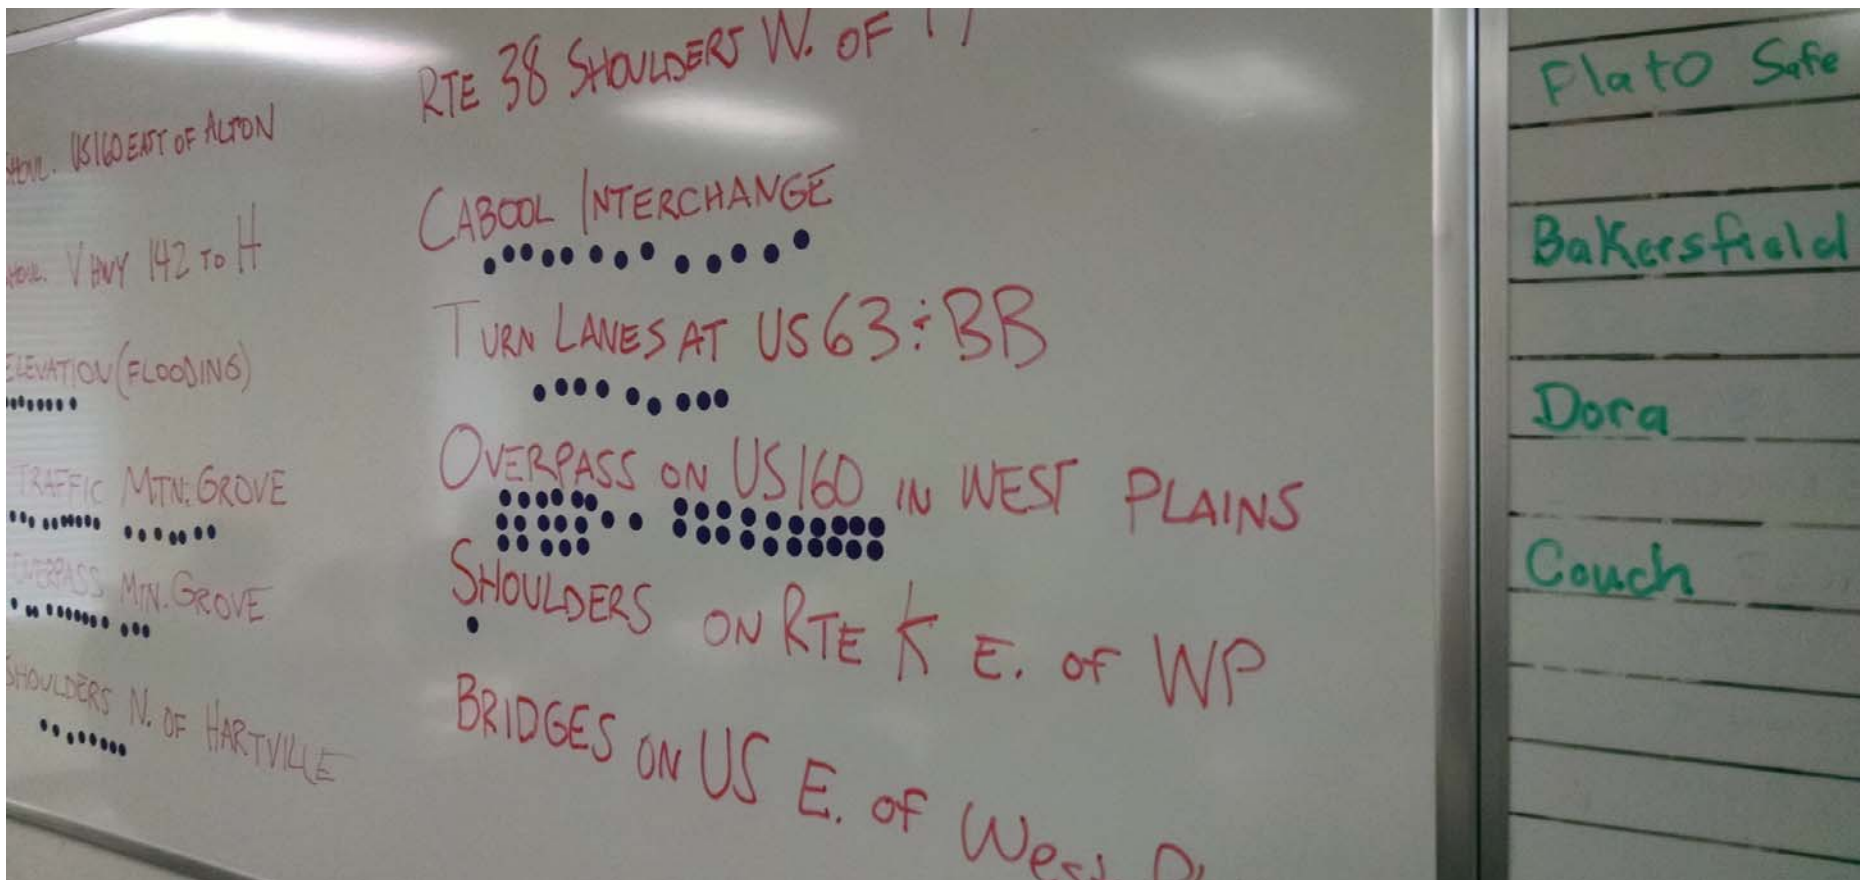 US160 EAST OF ALTON
V HWY 142 TO H
ELEVATION (FLOODING)
TRAFFIC MTN. GROVE
OVERPASS MTN. GROVE
SHOULDERS N. OF HARTVILLE
RTE 38 SHOULDERS W. OF
CABOOL INTERCHANGE
TURN LANES AT US 63 ÷ BB
OVERPASS ON US160 IN WEST PLAINS
SHOULDERS ON RTE K E. OF WP
BRIDGES ON US E. OF West
Plato Safe
Bakersfield
Dora
Couch